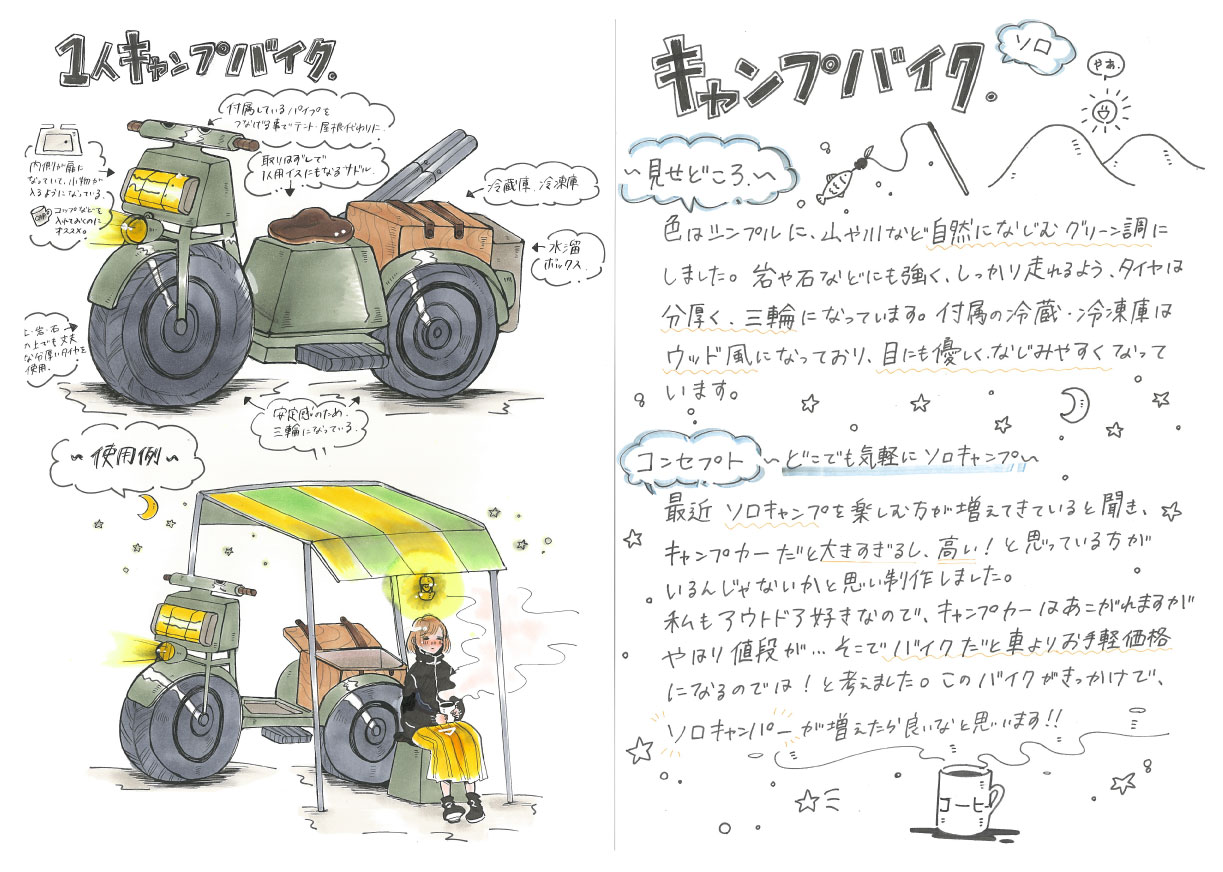 1人キャンプバイク。
付属しているパイプを
つなげる事でテント・屋根代わりに。
取りはずしで
1人用イスにもなるサドル。
内側が扉に
なっていて、小物が
入るようになっている。
コップなどを
入れておくのに
オススメ。
冷蔵庫・冷凍庫
水溜
ボックス。
岩・石
の上でも丈夫
な分厚いタイヤを
使用。
安定感のため、
三輪になっている。
~使用例~
キャンプバイク。
ソロ
やあ。
~見せどころ~
色はシンプルに、山や川など自然になじむグリーン調に
しました。岩や石などにも強く、しっかり走れるよう、タイヤは
分厚く、三輪になっています。付属の冷蔵・冷凍庫は
ウッド風になっており、目にも優しく、なじみやすくなって
います。
コンセプト
~どこでも気軽にソロキャンプ~
最近ソロキャンプを楽しむ方が増えてきていると聞き、
キャンプカーだと大きすぎるし、高い!と思っている方が
いるんじゃないかと思い制作しました。
私もアウトドア好きなので、キャンプカーはあこがれますが
やはり値段が…そこでバイクだと車よりお手軽価格
になるのでは!と考えました。このバイクがきっかけで、
ソロキャンパーが増えたら良いなと思います!!
コーヒー